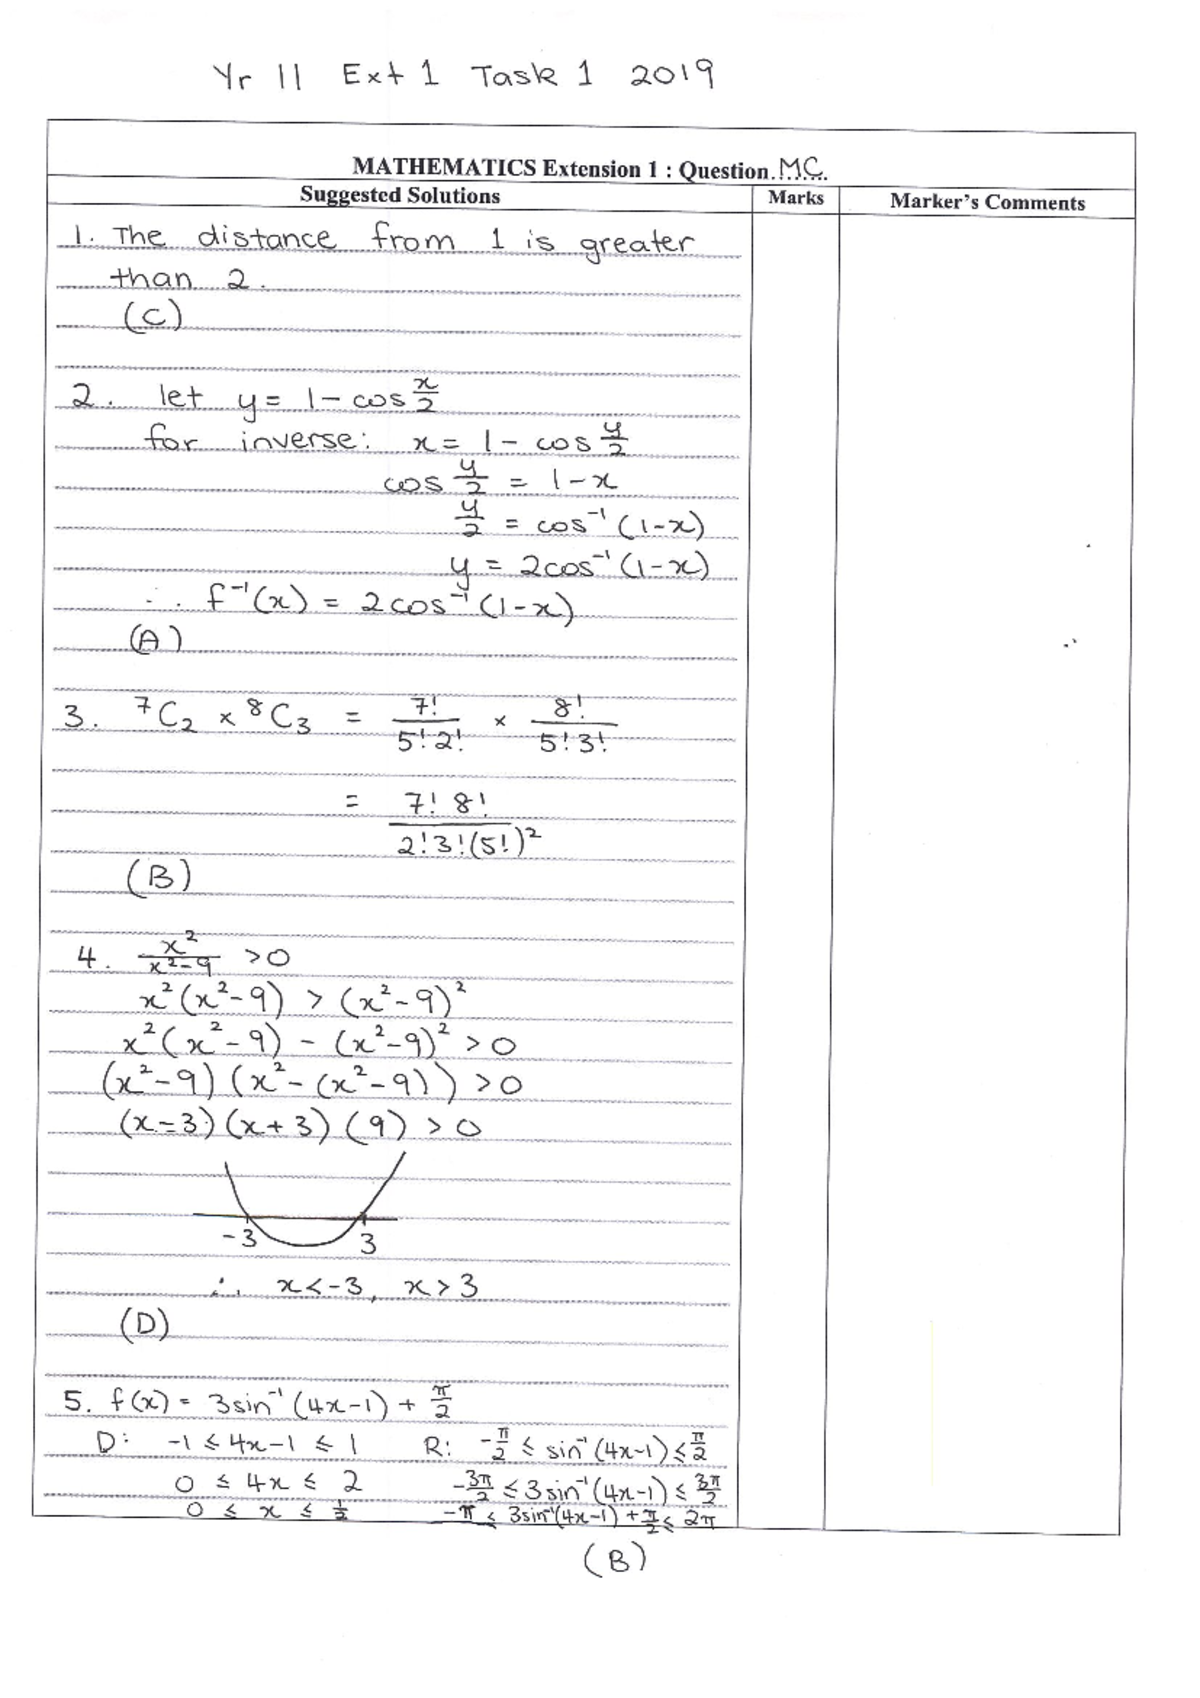 Yr 11 Ext 1 Task 1 2019
MATHEMATICS Extension 1 : Question MC
Suggested Solutions Marks Marker's Comments
1. The distance from 1 is greater
than 2.
(C)
2. let y = 1 - cos x/2
for inverse: x = 1 - cos y/2
cos y/2 = 1-x
y/2 = cos⁻¹ (1-x)
y = 2cos⁻¹ (1-x)
∴ f⁻¹(x) = 2cos⁻¹ (1-x)
(A)
3. ⁷C₂ × ⁸C₃ = 7!/5!2! × 8!/5!3!
= 7! 8!/2!3!(5!)²
(B)
4. x²/x²-9 >0
x²(x²-9) > (x²-9)²
x²(x²-9) - (x²-9)² >0
(x²-9)(x²-(x²-9)) >0
(x-3)(x+3)(9) >0
-3 3
∴ x<-3, x>3
(D)
5. f(x) = 3sin⁻¹ (4x-1) + π/2
D: -1 ≤ 4x-1 ≤ 1 R: -π/2 ≤ sin⁻¹(4x-1) ≤ π/2
0 ≤ 4x ≤ 2 -3π/2 ≤ 3sin⁻¹(4x-1) ≤ 3π/2
0 ≤ x ≤ 1/2 -π ≤ 3sin⁻¹(4x-1) + π/2 ≤ 2π
(B)